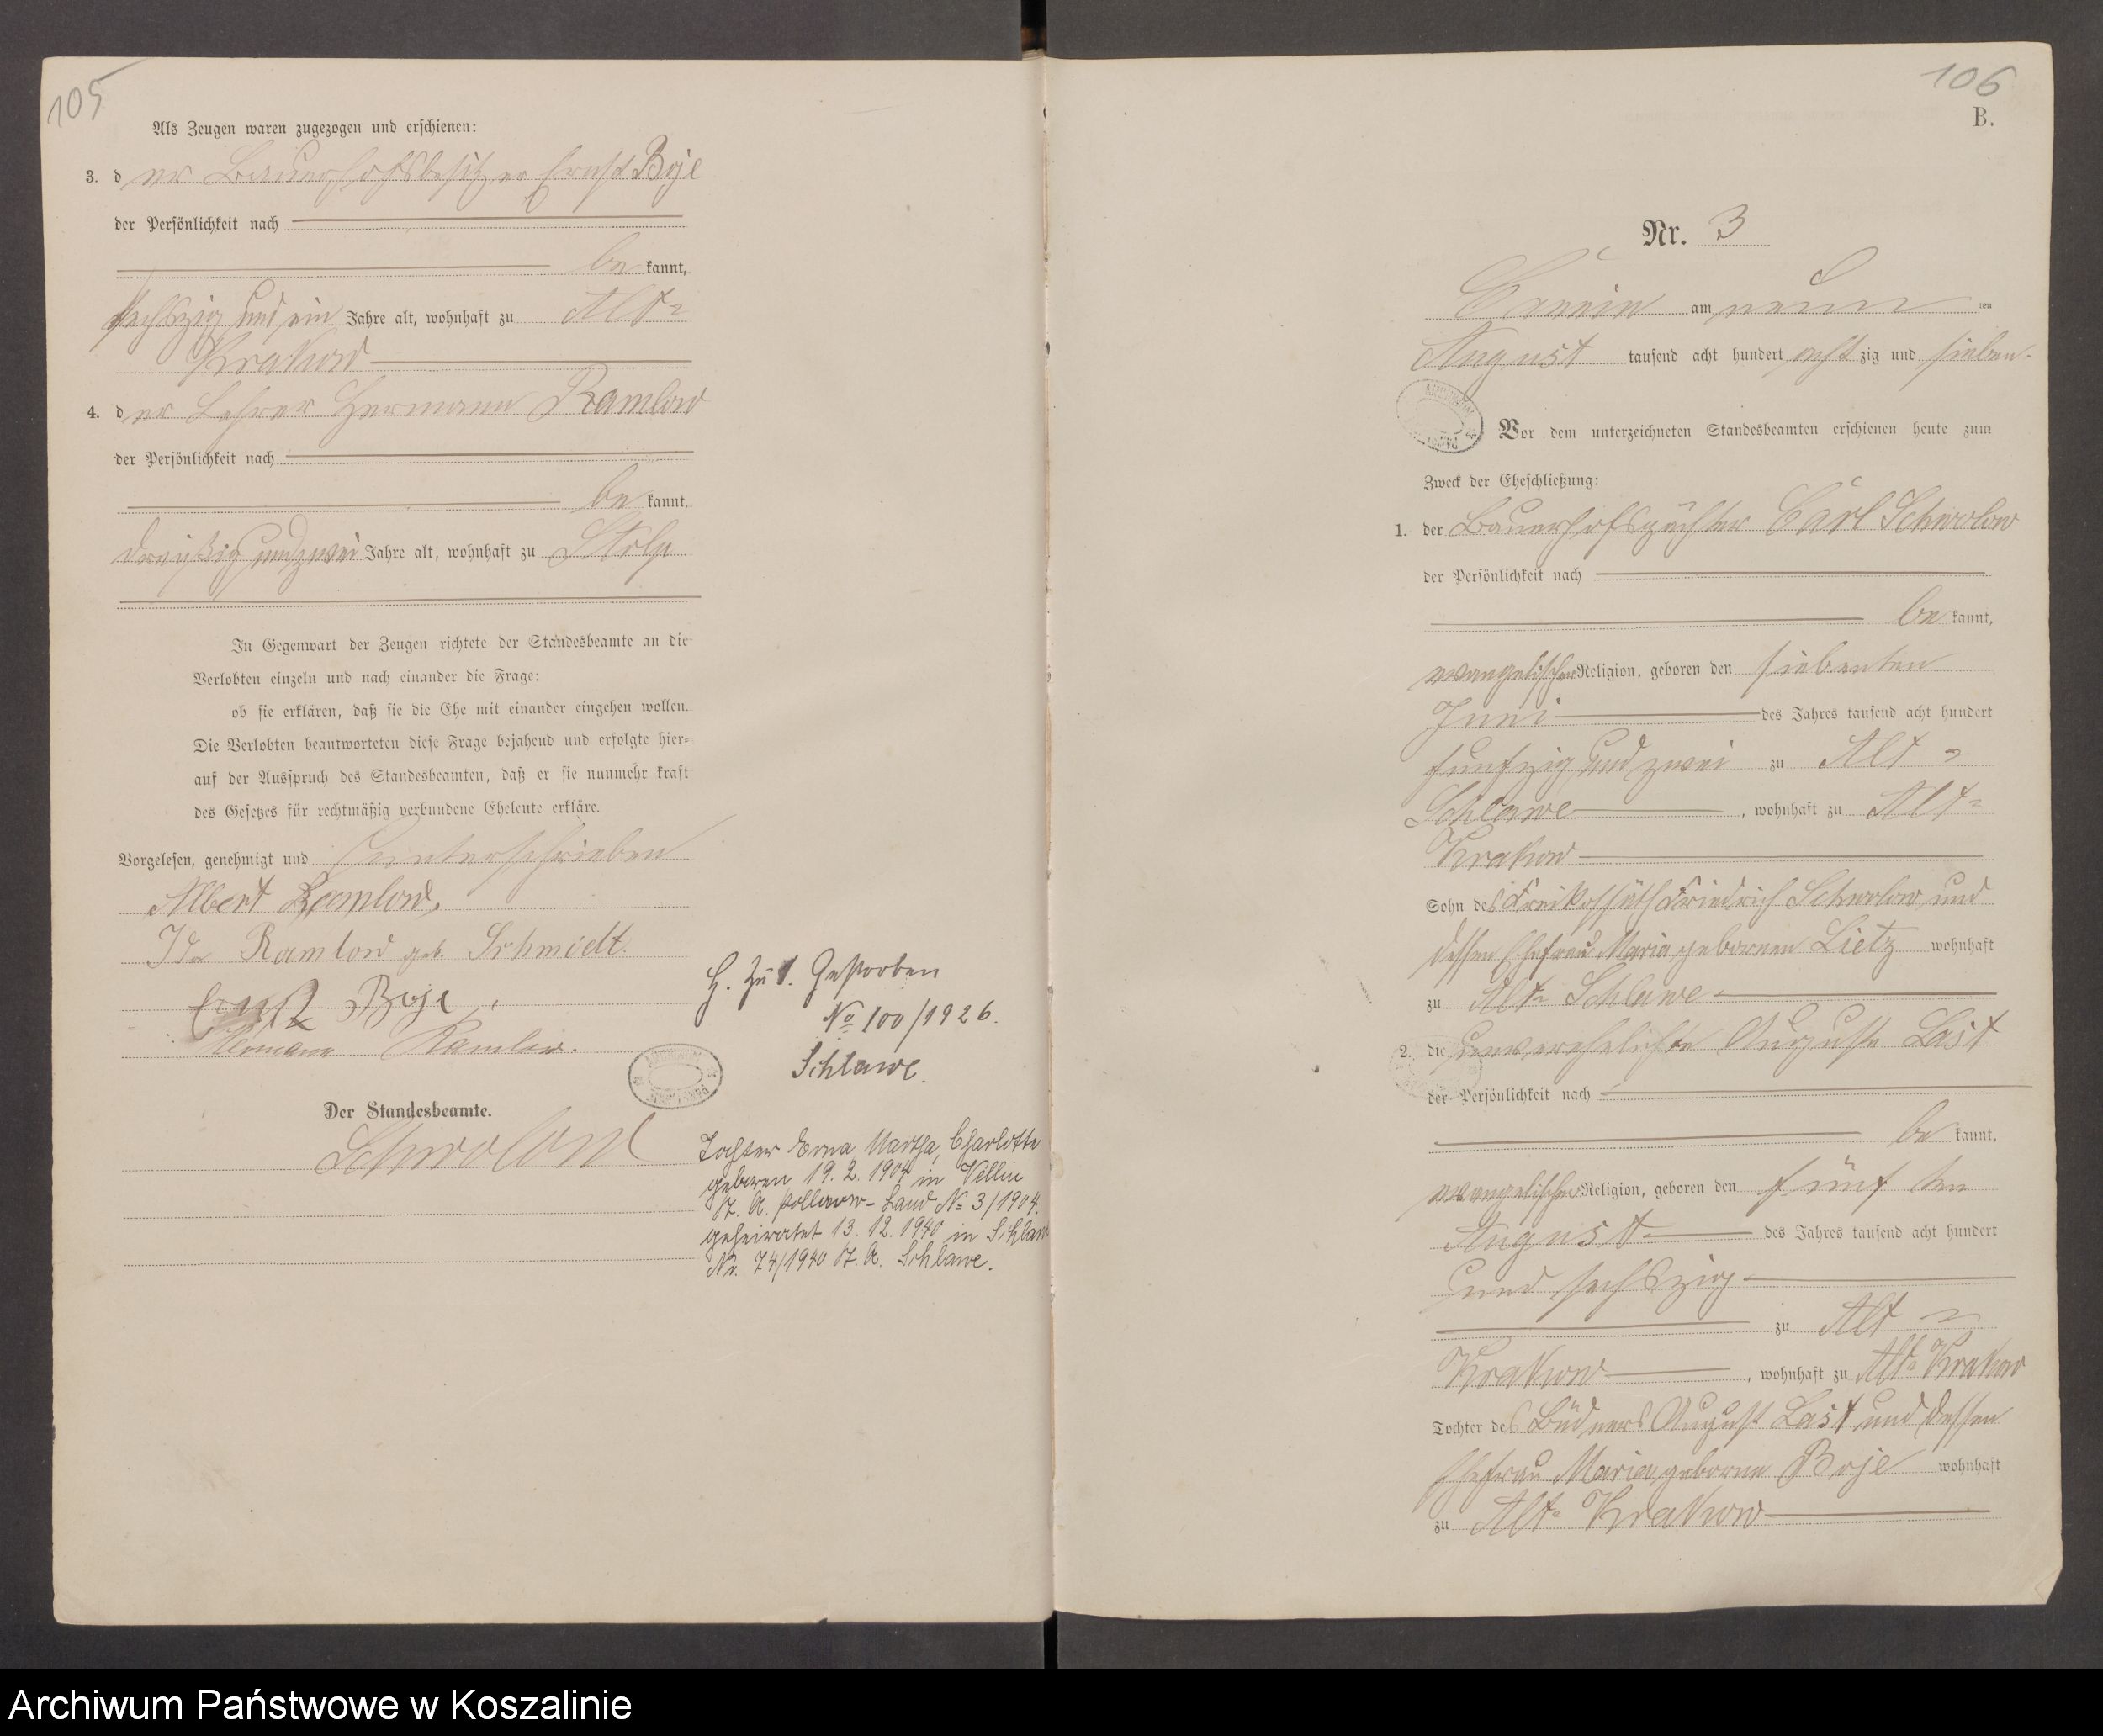 105
Als Zeugen waren zugezogen und erschienen:
3. der Bauerhofsbesitzer Ernst Boje
der Persönlichkeit nach
be kannt,
sechszig und ein Jahre alt, wohnhaft zu Alt-
Krakow
4. der Lehrer Hermann Ramlow
der Persönlichkeit nach
be kannt,
dreißig und zwei Jahre alt, wohnhaft zu Stolp
In Gegenwart der Zeugen richtete der Standesbeamte an die
Verlobten einzeln und nach einander die Frage:
ob sie erklären, daß sie die Ehe mit einander eingehen wollen.
Die Verlobten beantworteten diese Frage bejahend und erfolgte hier-
auf der Ausspruch des Standesbeamten, daß er sie nunmehr kraft
des Gesetzes für rechtmäßig verbundene Eheleute erkläre.
Vorgelesen, genehmigt und unterschrieben
Albert Ramlow,
Ida Ramlow geb. Schmidt.
Ernst Boje,
Hermann Ramlow.
Der Standesbeamte.
Schwolow
H. zu 1. Gestorben
No 100/1926.
Schlawe.
Tochter Erna Martha, Charlotte
geboren 19. 2. 1904 in Vellin
St. A. Pollnow-Land No 3/1904.
geheiratet 13. 12. 1940 in Schlawe
Nr. 74/1940 St. A. Schlawe.
106
B.
Nr. 3
am neun ten
August tausend acht hundert acht zig und sieben.
Vor dem unterzeichneten Standesbeamten erschienen heute zum
Zweck der Eheschließung:
1. der Bauerhofspächter Carl Schwolow
der Persönlichkeit nach
be kannt,
evangelischer Religion, geboren den siebenten
Juni des Jahres tausend acht hundert
funfzig und zwei zu Alt-
Schlawe, wohnhaft zu Alt-
Krakow
Sohn des Freikossäth Friedrich Schwolow und
dessen Ehefrau Maria gebornen Lietz wohnhaft
zu Alt-Schlawe
2. die unverehelichte Auguste Last
der Persönlichkeit nach
be kannt,
evangelischer Religion, geboren den fünf ten
August des Jahres tausend acht hundert
und sechszig
zu Alt-
Krakow, wohnhaft zu Alt-Krakow
Tochter des Büdners August Last und dessen
Ehefrau Maria, geborne Boje wohnhaft
zu Alt-Krakow
Archiwum Państwowe w Koszalinie